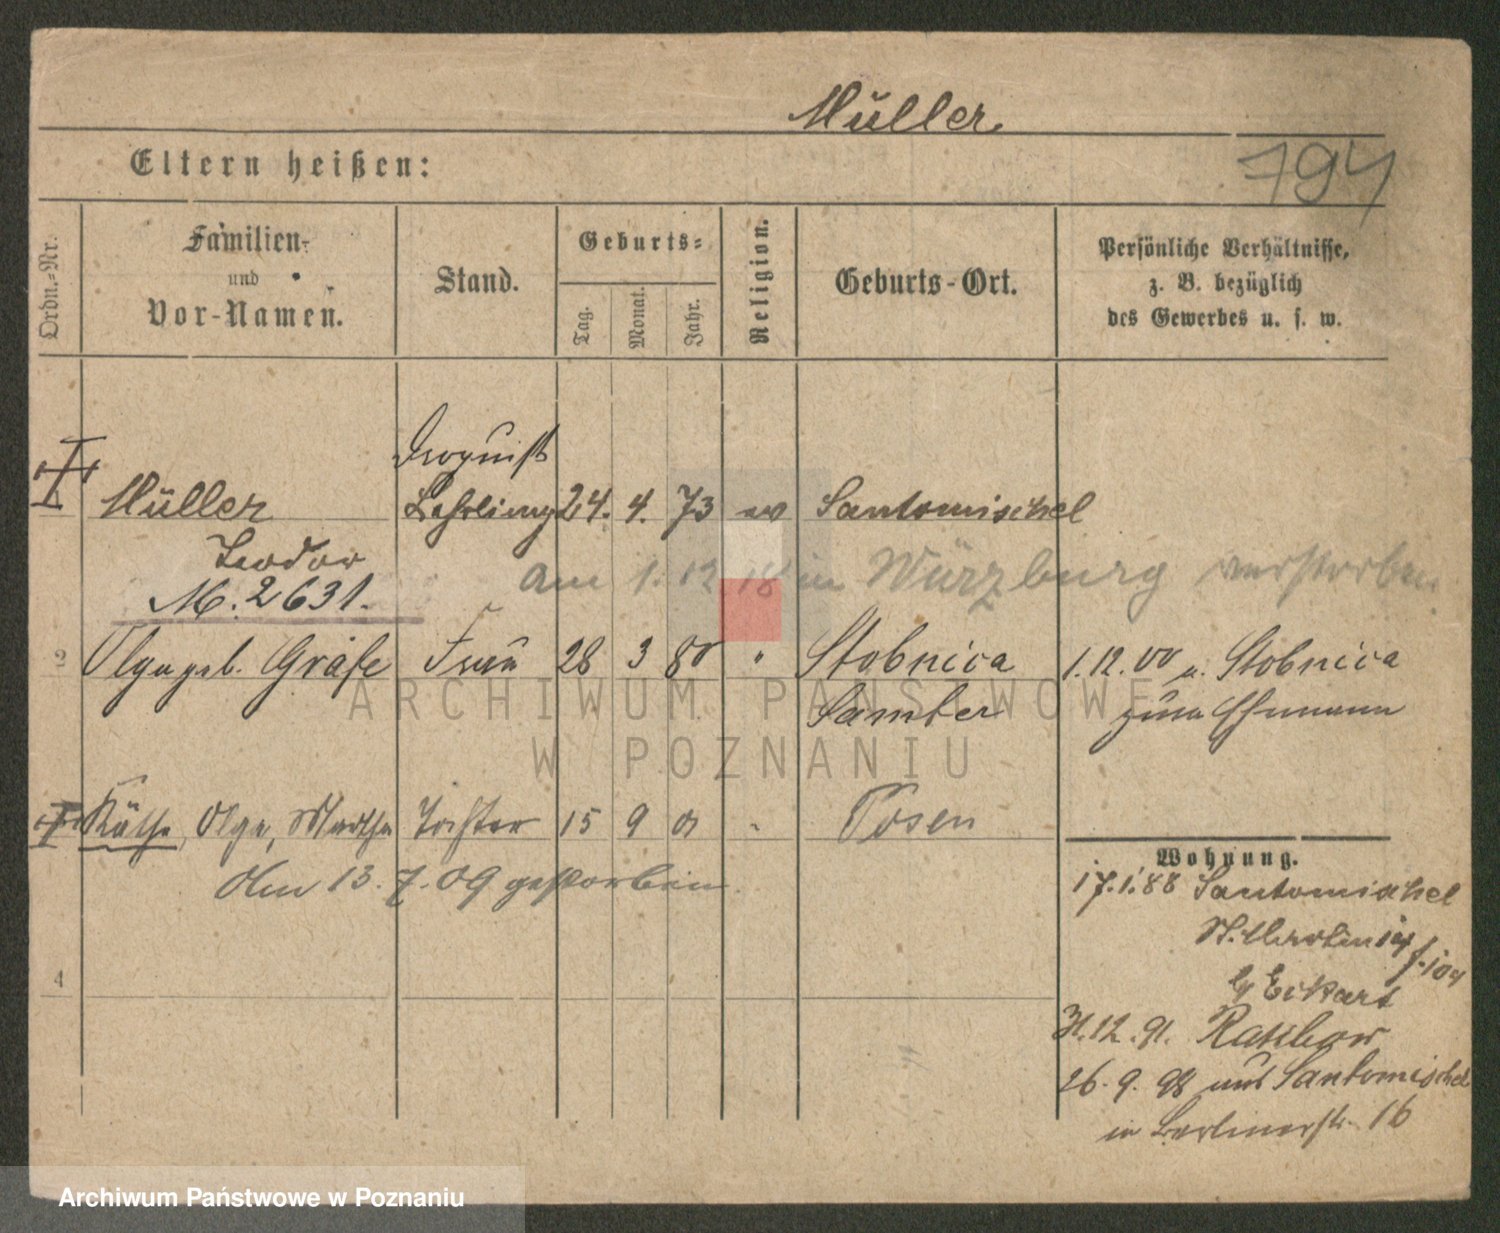 Müller
Eltern heißen:
794
Ordn.-Nr.
Familien-
und
Vor-Namen.
Stand.
Geburts-
Tag.
Monat.
Jahr.
Religion.
Geburts-Ort.
Persönliche Verhältnisse,
z. B. bezüglich
des Gewerbes u. s. w.
Droguist
1 Müller Lehrling 24. 4. 73 ev Santomischel
Teodor
am 1. 12 18 in Würzburg verstorben
M. 2631.
2 Olga geb. Gräfe Frau 28 3 80 " Stobnica 1.12.00 v. Stobnica
Samter zum Ehemann
ARCHIWUM PAŃSTWOWE
W POZNANIU
Käthe, Olga, Martha Tochter 15 9 01 " Posen
Am 13. 7. 09 gestorben.
Wohnung.
17.1.88 Santomischel
St.
b/ Eckart
4
31.12.91.
26. 9. 98 aus Santomischel
in Berlinerstr. 16
Archiwum Państwowe w Poznaniu